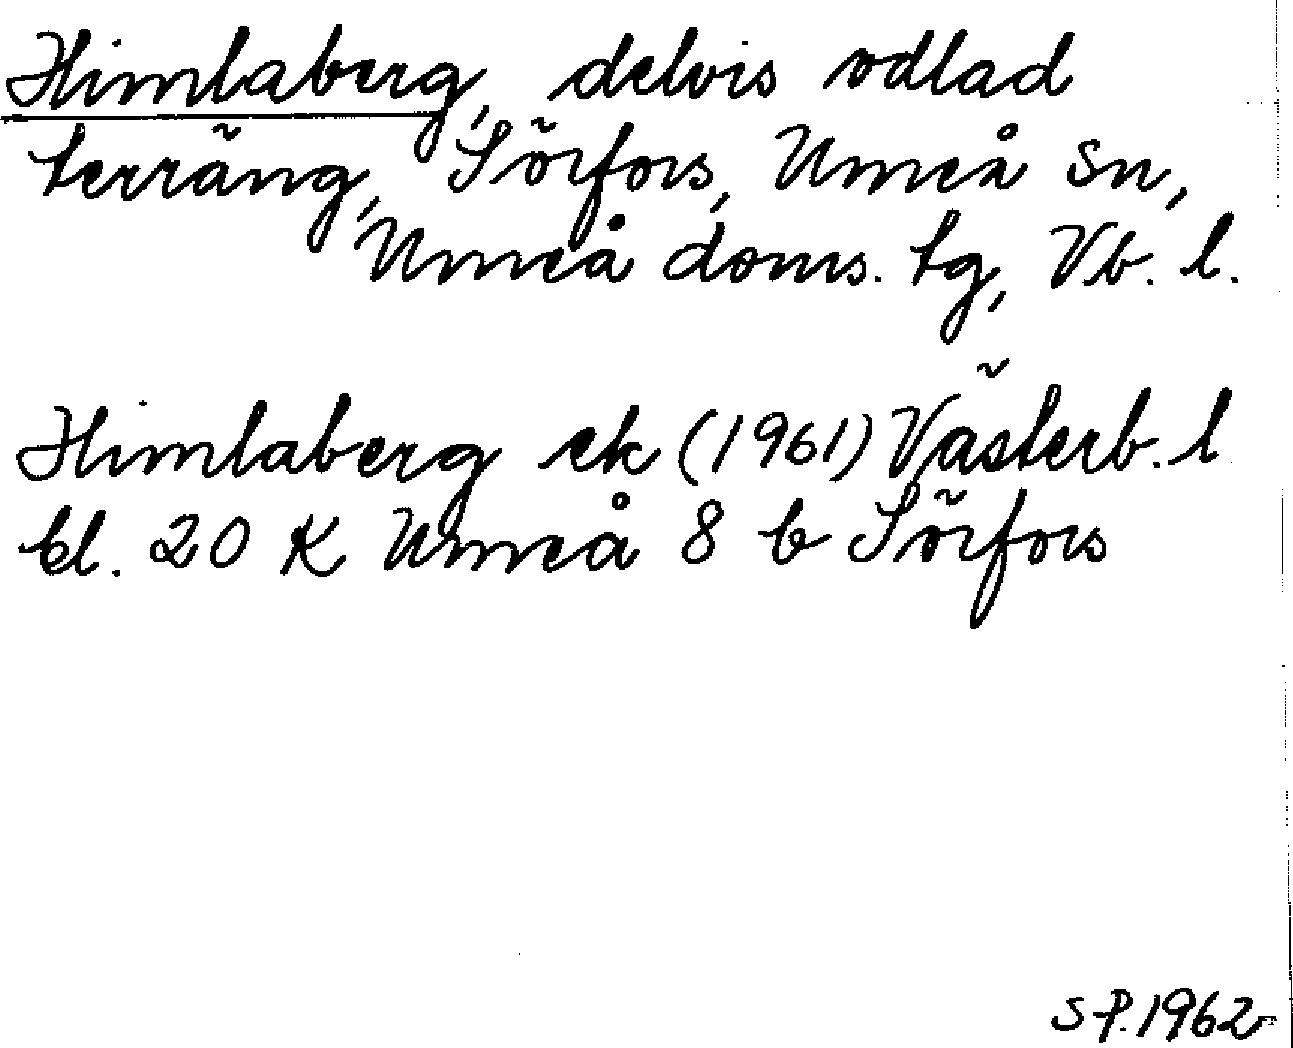 Himlaberg, delvis odlad
terräng, Sörfors, Umeå sn,
Umeå doms. tg, Vb. l.
Himlaberg ek (1961) Västerb. l
bl. 20 K Umeå 8 b Sörfors
S P. 1962